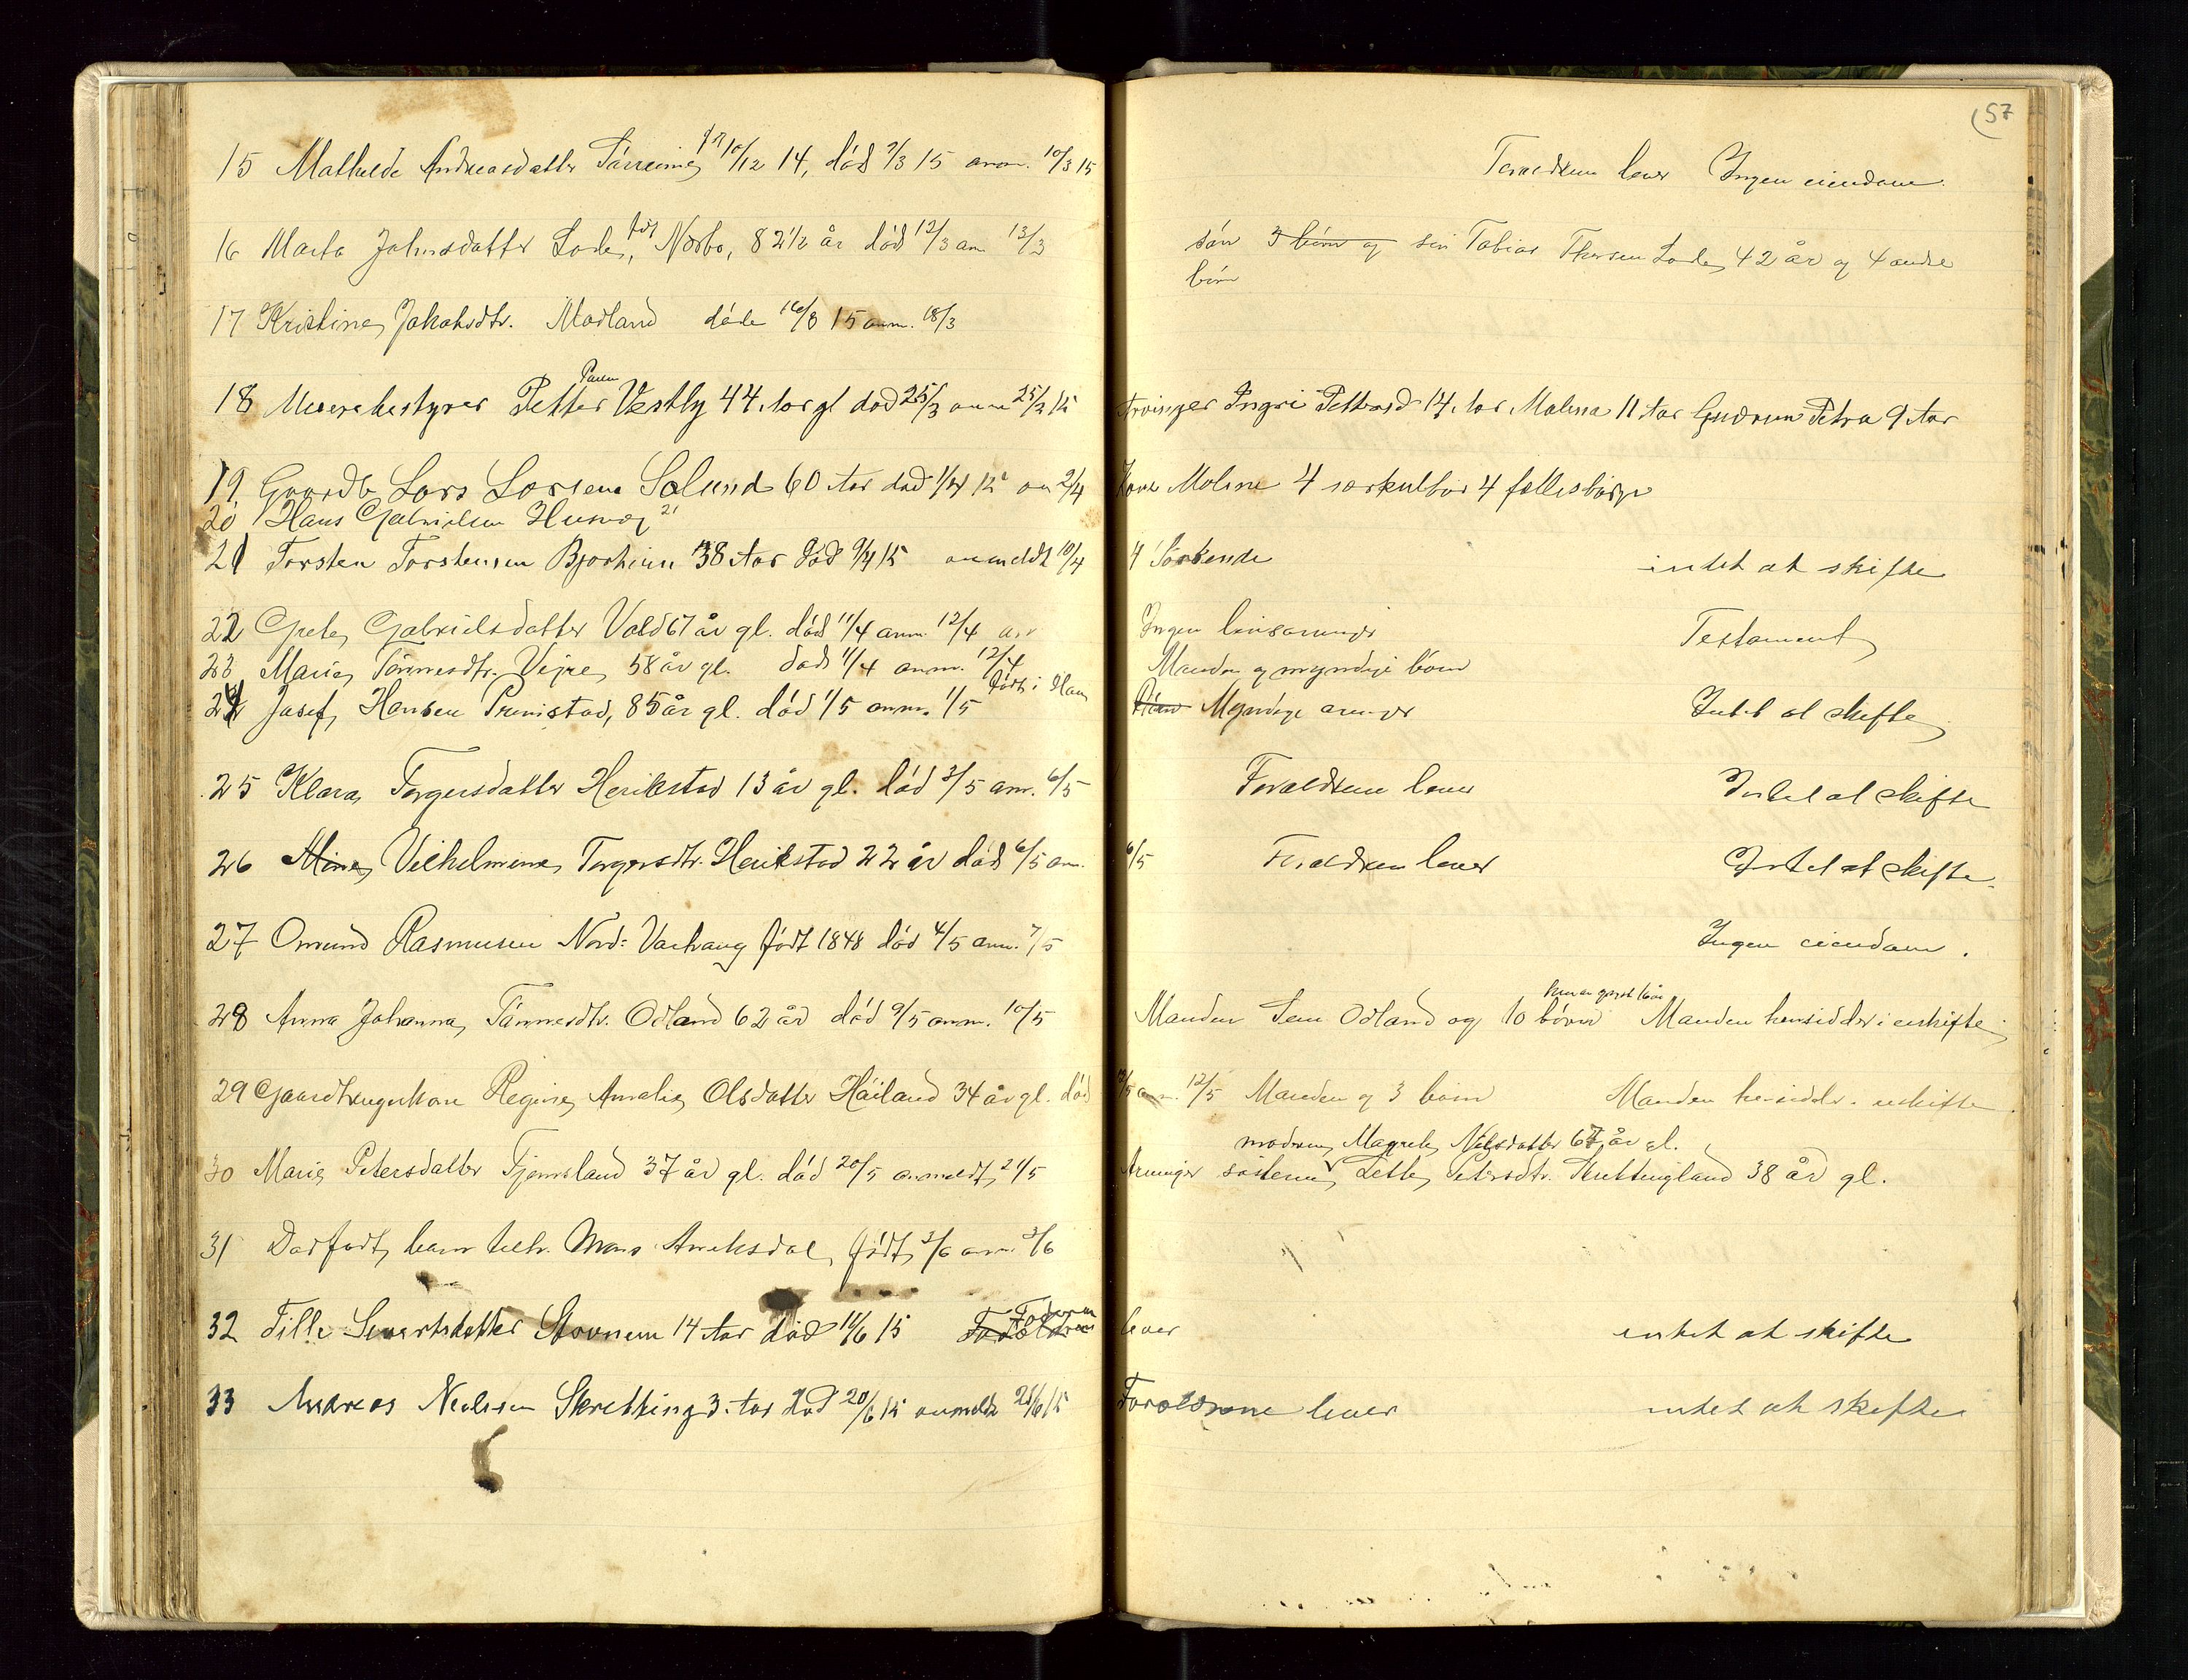 57
15 Mathilde Andreasdatter født 10/12 14, död 9/3 15 anm. 10/3 15 Foraeldrene lever Ingen eiendom.
16 Marta Johnsdatter Lode, född Nærbø, 82 1/2 år död 12/3 anm 13/3 sön 3 börn og sin Tobias Thorsen Lode, 42 år og 4 andre
börn
17 Kristine Jakobsdtr. Motland döde 16/3 15 anm. 18/3
18 Meieribestyrer Petter Vestly 44 Aar gl död 25/3 anm 25/3 15 Arvinger Ingri Pettersd 14 Aar Malena 11 Aar Gudrun Petra 9 Aar
19 Gaardb Lars Larsen Salund 60 Aar död 1/4 15 an 2/4 Kone Malene 4 særkulbör 4 fællesbörn
20 Hans Gabrielsen 21
21 Torsten Torstensen Bjorheim 38 Aar död 9/4 15 anmeldt 10/4 4 Söskende intet at skifte
22 Grete Gabrielsdatter Vold 67 år gl. död 11/4 anm. 12/4 Ingen livsarvinger Testament
23 Marie Tönnesdtr. Vigre, 58 år gl. död 11/4 anm. 12/4 Manden og myndige börn
född i Ham
24 Josef Hansen 85 år gl. död 1/5 anm. 1/5 Myndige arvinger Intet at skifte
25 Klara Torgersdatter Herikstad 13 år gl. död 3/5 anm. 6/5 Foraeldrene lever Intet at skifte
26 Mina Vilhelmine Torgersdtr. Herikstad 22 år död 6/5 anm. 6/5 Foraeldrene lever Intet at skifte.
27 Omund Rasmusen Nord: Varhaug født 1848 död 4/5 anm. 7/5 Ingen eiendom.
28 Anna Johanna Tönnesdtr. Odland 62 år död 9/5 anm. 10/5 Manden Odland og 10 börn Manden hensidder i uskifte
29 Gaardbrugerkone Regine Amalie Olsdatter Höiland 34 år gl. död 12/5 anm. 12/5 Manden og 3 börn Manden hensidder i uskifte
modren Magrete Nilsdatter 67 år gl.
30 Marie Petersdatter Fjermsland 37 år gl. död 20/5 anmeldt 21/5 Arvinger sösteren Petersdtr. 38 år gl.
31 Dödfödt barn tilh. Mons Aniksdal, född 3/6 anm. 3/6
Faderen
32 Tille Sivertsdatter Stavnem 14 Aar död 10/6 15 Foraeldrene lever intet at skifte
33 Andreas Nielsen Skretting 3 Aar död 20/6 15 anmeldt 21/6 15 Foraeldrene lever intet at skifte